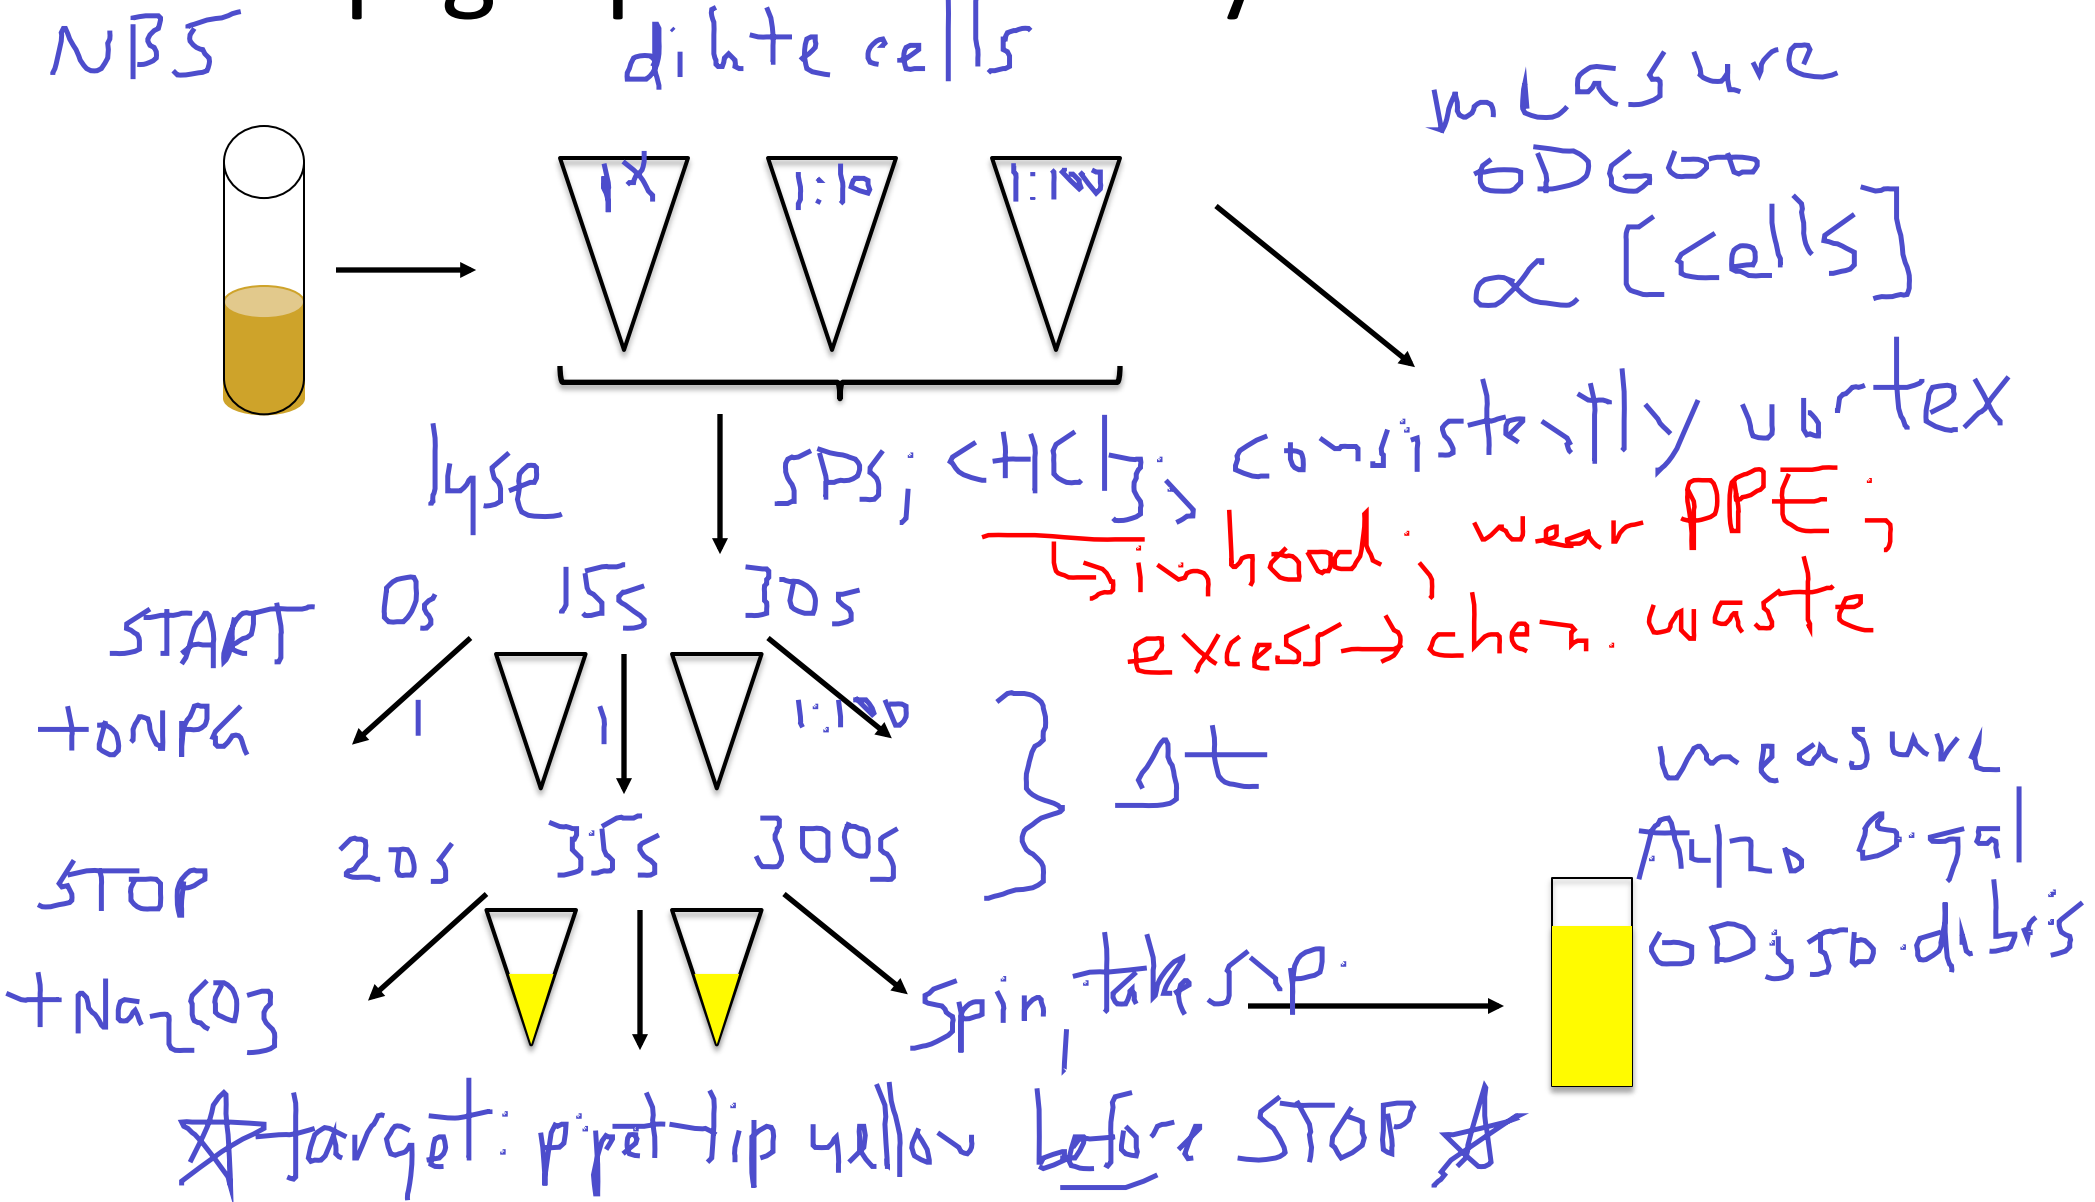 NB5
dilute cells
measure
OD600
∝ [cells]
1X
1:10
1:100
lyse
SDS, CHCl3, consistently vortex
↳ in hood, wear PPE,
excess → chem. waste
START
0s 15s 30s
+ONPG
1 1 1:100
Δt
STOP
20s 35s 300s
+Na2CO3
spin, take sup.
measure
A420 B-gal
OD550 debris
☆ target: pipet tip yellow before STOP ☆